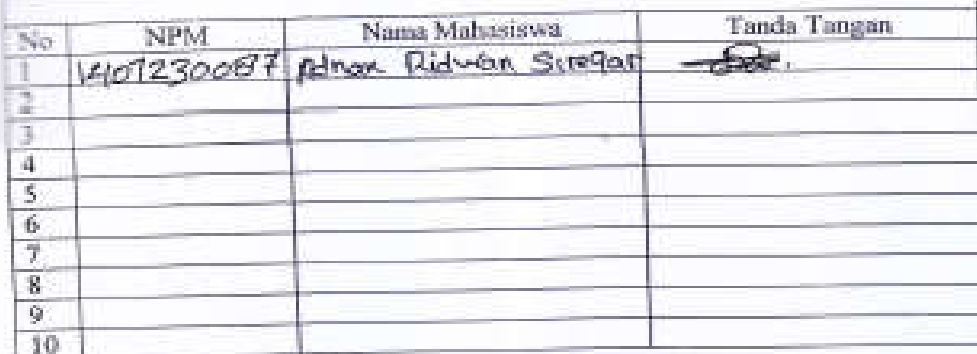 No NPM Nama Mahasiswa Tanda Tangan
1 1407230087 Adnan Ridwan Siregar
2
3
4
5
6
7
8
9
10